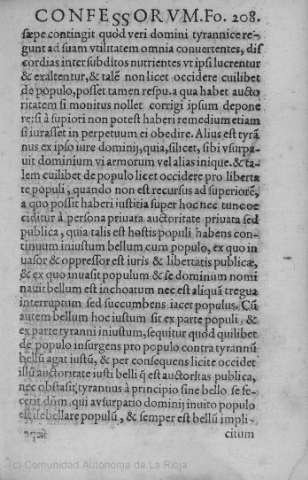 CONFESSORVM. Fo. 208.
sæpe contingit quód veri domini tyrannice re-
gunt ad suam vtilitatem omnia conuertentes, dis
cordias inter subditos nutrientes vt ipsi lucrentur
& exaltentur, & talẽ non licet occidere cuilibet
de populo, posset tamen respu. a qua habet aucto
ritatem si monitus nollet corrigi ipsum depone
re; si à supiori non potest haberi remedium etiam
si iurasset in perpetuum ei obedire. Alius est tyrã
nus ex ipso iure dominij, quia, scilicet, sibi vsurpa-
uit dominium vi armorum vel alias inique. & ta-
lem cuilibet de populo licet occidere pro liberta
te populi, quando non est recursus ad superiorẽ,
a quo possit haberi iustitia super hoc nec tunc oc
ciditur à persona priuata auctoritate priuata sed
publica, quia talis est hostis populi habens con-
tinuum iniustum bellum cum populo, ex quo in
uasor & oppressor est iuris & libertatis publicæ,
& ex quo inuasit populum & se dominum nomi
nauit bellum est inchoatum nec est aliquã tregua
interruptum sed succumbens iacet populus. Cũ
autem bellum hoc iustum sit ex parte populi, &
ex parte tyranni iniustum, sequitur quód quilibet
de populo insurgens pro populo contra tyrannũ
bellũ agat iustũ, & per consequens licite occidet
illũ auctoritate iusti belli q̃ est auctoritas publica,
nec obstat si tyrannus à principio sine bello se fe-
cerit dom. qui a vsurpatio dominij inuito populo
est rebellare populũ, & semper est bellũ impli-
citum